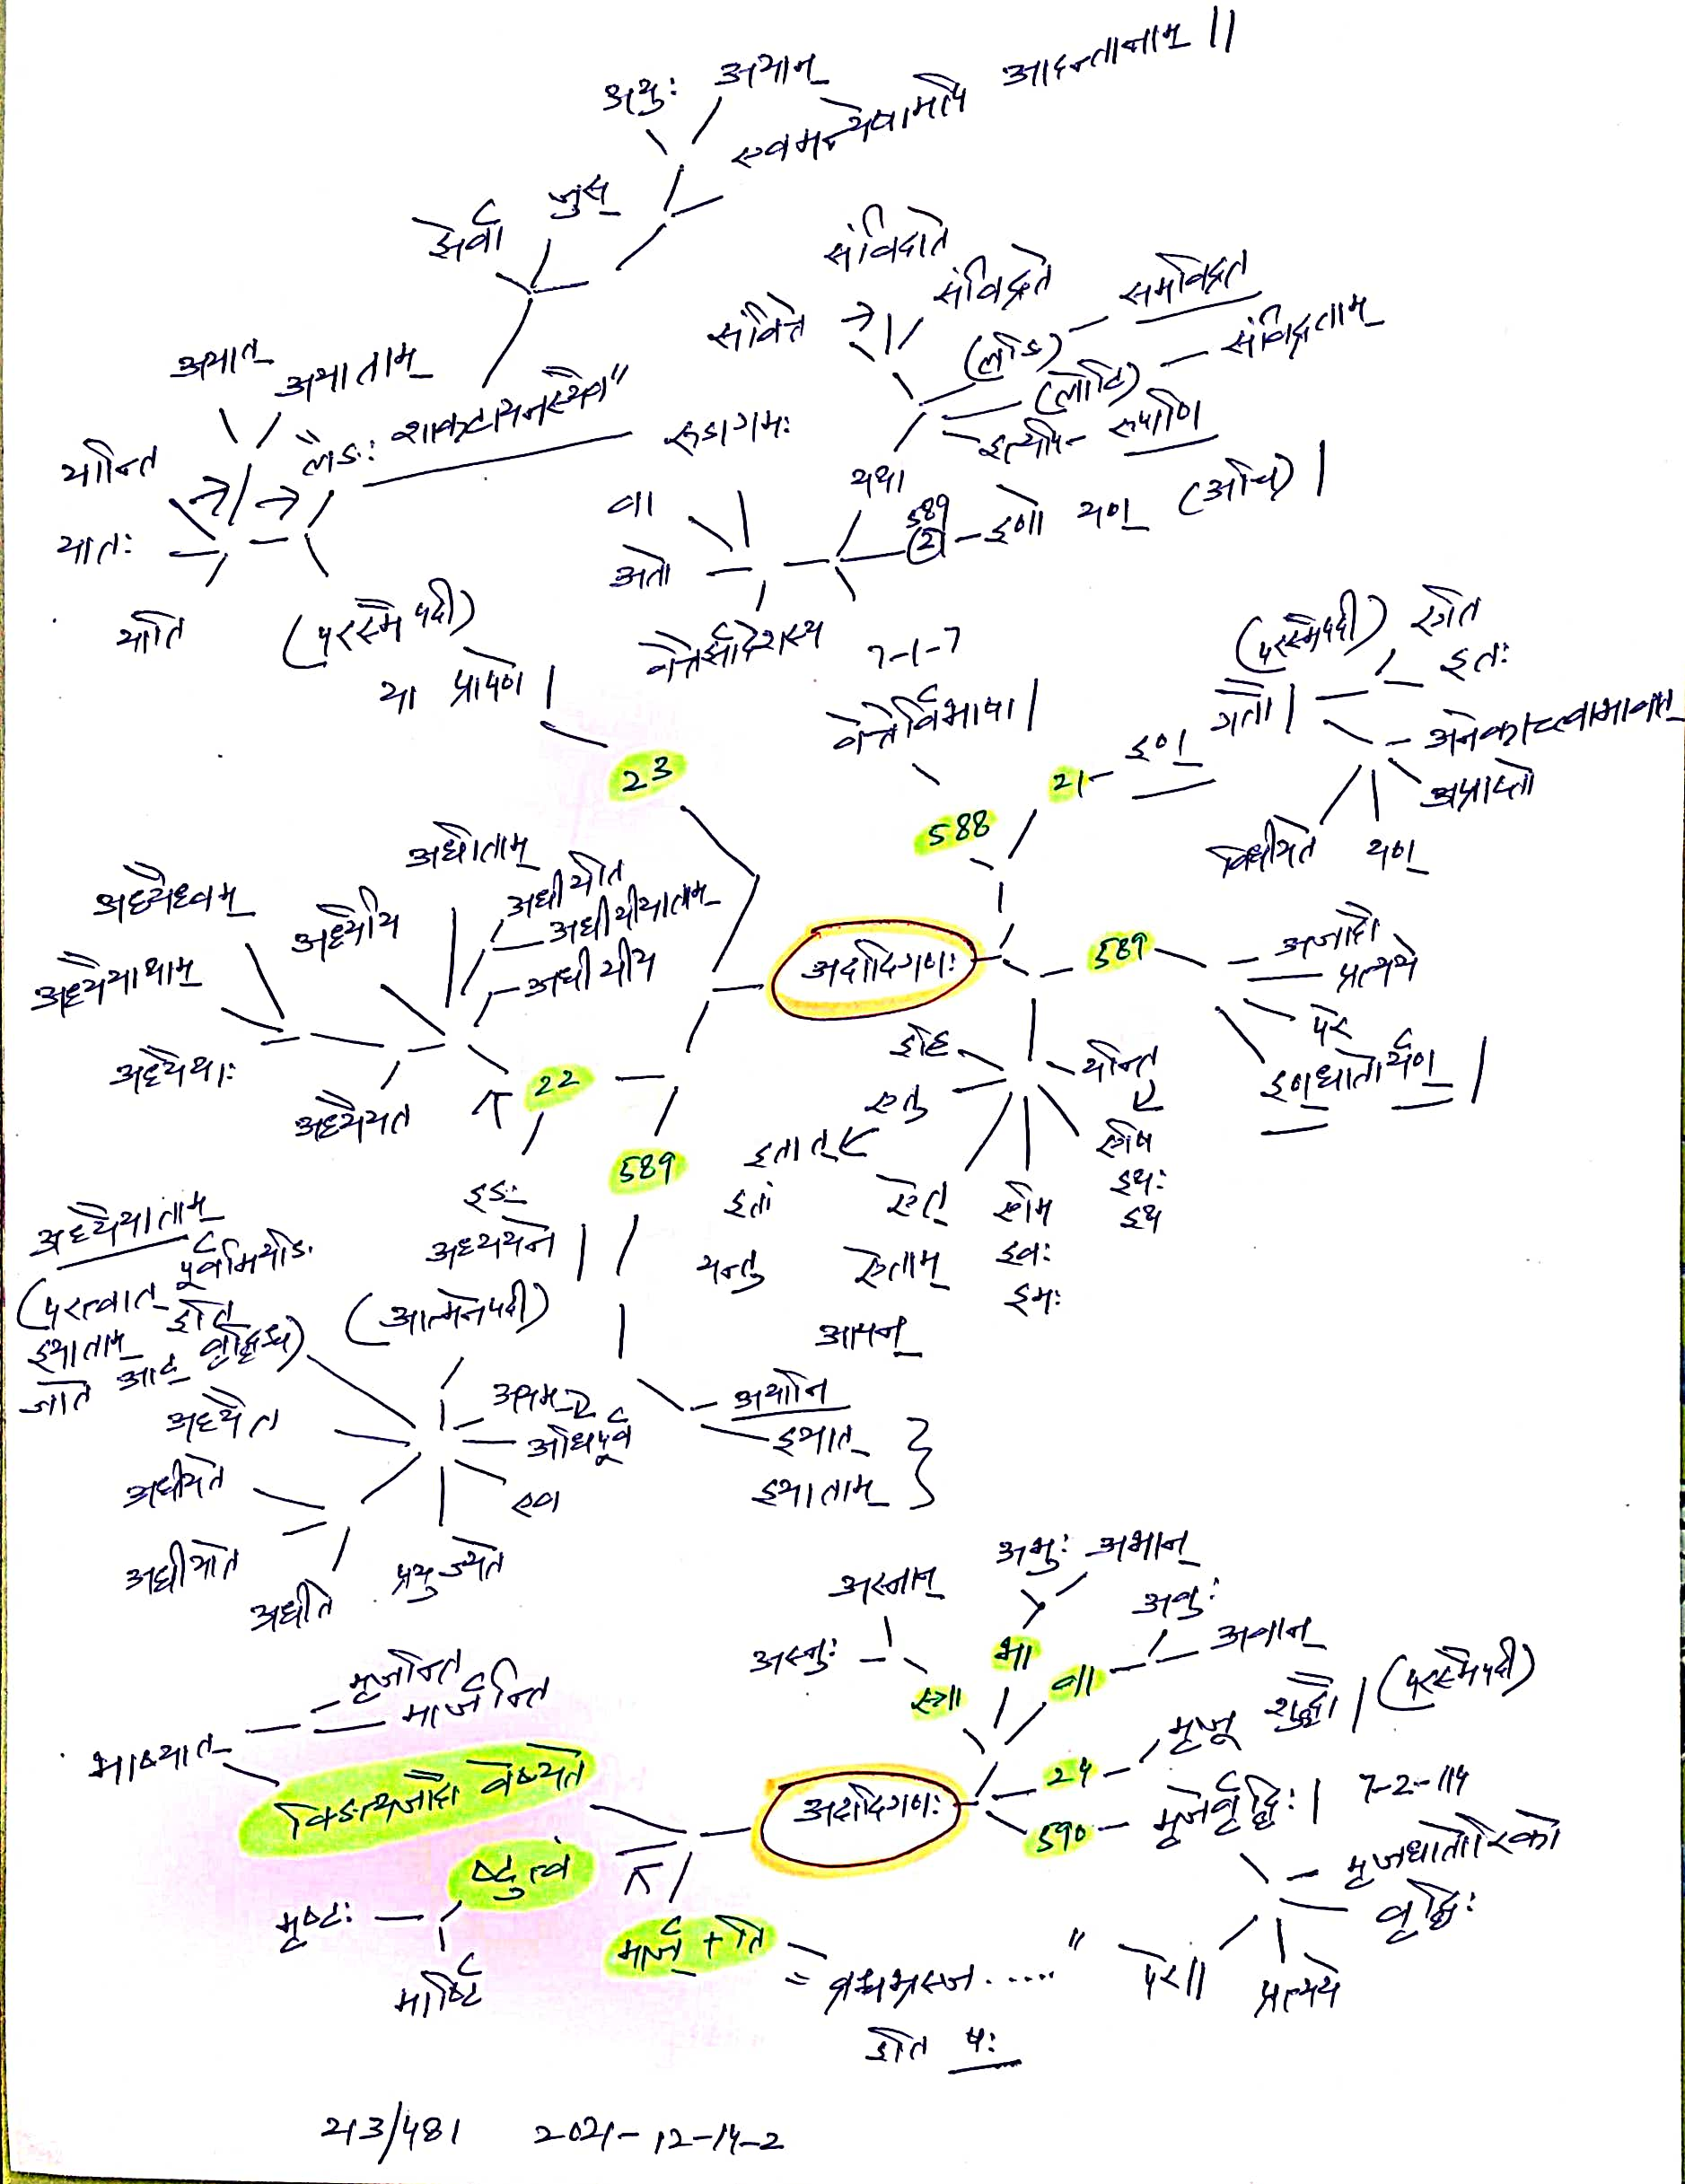 अयुः अयान्
एवमन्येषामपि आदन्तानाम् ||
झेर्वा जुस्
लङः शाकटायनस्यैव"
अयात् अयाताम्
यान्ति
यातः
याति
(परस्मैपदी)
या प्रापणे |
23
संविदाते
संवित्ते संविद्रते
(लङि) समविद्रत
(लोटि) संविद्रताम्
इत्यपि रूपाणि
रुडागमः
वा यथा
अतो
वेत्तेर्झादेशस्य
589
(2) - इणो यण् (अचि) |
7-1-7
वेत्तेर्विभाषा |
588
21 - इण् गतौ |
(परस्मैपदी) एति
इतः
अनेकाच्त्वाभावात्
अप्राप्तौ
यण्
विधीयते
अदादिगणः
589
अजादौ
प्रत्यये
परे
इण्धातोर्यण् |
यन्ति
एषि
इथः
इथ
एमि
इवः
इमः
ऐत्
ऐताम्
आयन्
इहि
एतु
इतात्
इतां
यन्तु
589
अयानि
इयात्
इयाताम्
22
इङः
अध्ययने |
(आत्मनेपदी)
अयम्
अधिपूर्व
एव
प्रयुज्यते
अधीते
अधीयाते
अधीयते
अध्यैत
अध्यैयाताम्
(परत्वात् पूर्वमियङ्
इति
इयाताम्
जाते आट् वृद्धिश्च)
अध्यैयत
अध्यैथाः
अध्यैयाथाम्
अध्यैध्वम्
अध्यैयि
अधीताम्
अधीयीत
अधीयीयाताम्
अधीयीय
अदादिगणः
स्ना
अस्नुः
अस्नान्
भा
अभुः अभान्
वा
अवुः
अवान्
24 - मृजू शुद्धौ | (परस्मैपदी)
590 - मृजेर्वृद्धिः | 7-2-114
मृजधातोरिको
वृद्धिः
प्रत्यये
परे ||
मार्ज् + ति
= व्रश्चभ्रस्ज ..... "
इति षः
ष्टुत्वं
मार्ष्टि
मृष्टः
क्ङित्यजादौ वेष्यते
भाष्यात्
मृजन्ति
मार्जन्ति
213/481 2021-12-14-2